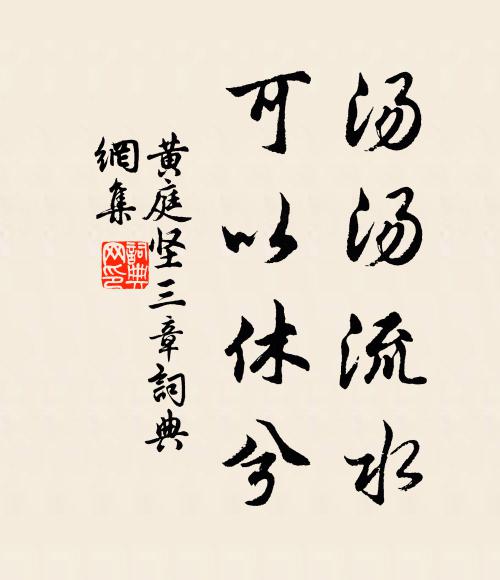 汤汤流水
可以休兮
黄庭坚三章詞典
網集
詞典
网印